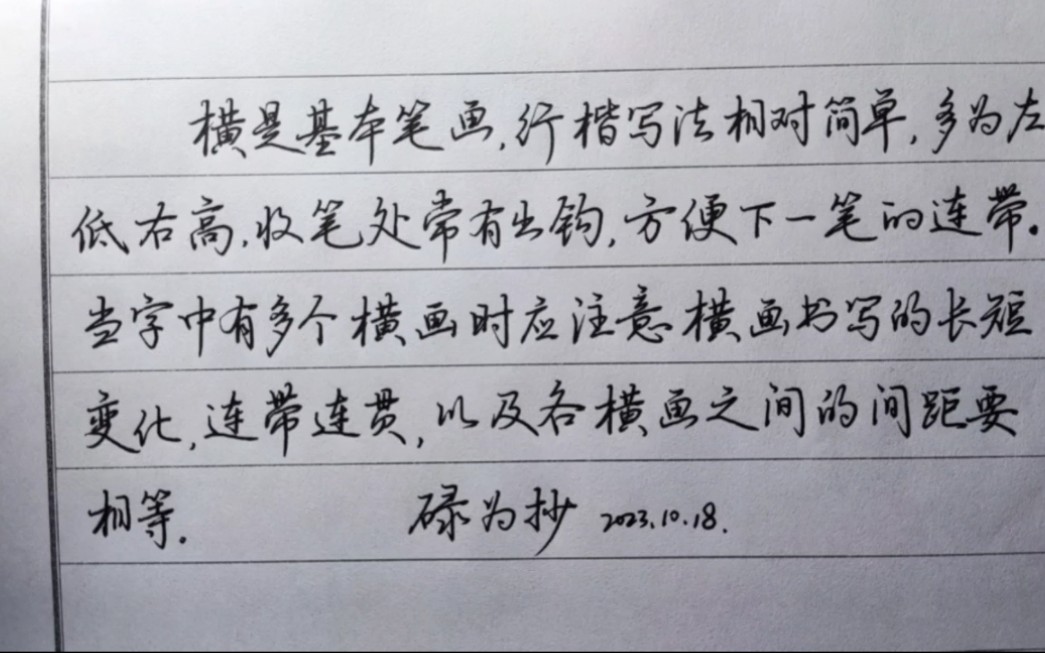 横是基本笔画,行楷写法相对简单,多为左
低右高,收笔处常有出钩,方便下一笔的连带.
当字中有多个横画时应注意横画书写的长短
变化,连带连贯,以及各横画之间的间距要
相等. 碌为抄 2023.10.18.